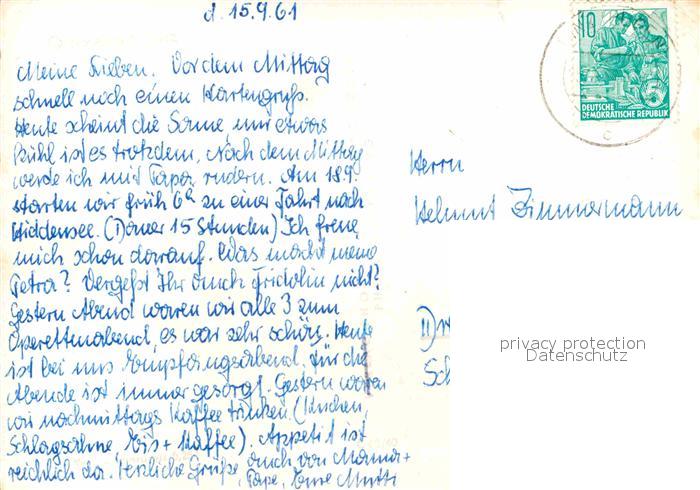 d. 15.9.61
Meine Lieben. Vor dem Mittag
schnell noch einen Kartengruß.
Heute scheint die Sonne nur etwas
kühl ist es trotzdem. Nach dem Mittag
werde ich mit Papa rudern. Am 18.9.
starten wir früh 6h zu einer Fahrt nach
Hiddensee. (Dauer 15 Stunden) Ich freue
mich schon darauf. Was macht meine
Petra? Vergeßt Ihr auch Fridolin nicht?
Gestern Abend waren wir alle 3 zum
Operettenabend, es war sehr schön. Heute
ist bei uns Empfangsabend. für die
Abende ist immer gesorgt. Gestern waren
wir nachmittags Kaffee trinken. (Kuchen,
Schlagsahne, Eis + Kaffee). Appetit ist
reichlich da. Herzliche Grüße, auch von Mama +
Papa, Eure Mutti
10
5
DEUTSCHE
DEMOKRATISCHE REPUBLIK
c
Herrn
Helmut Zimmermann
privacy protection
Datenschutz
Sch